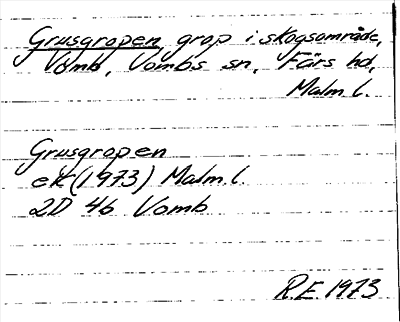 Grusgropen, grop i skogsområde,
Vomb, Vombs sn, Färs hd,
Malm l.
Grusgropen
ek (1973) Malm l.
2D 4b Vomb
R.E. 1973